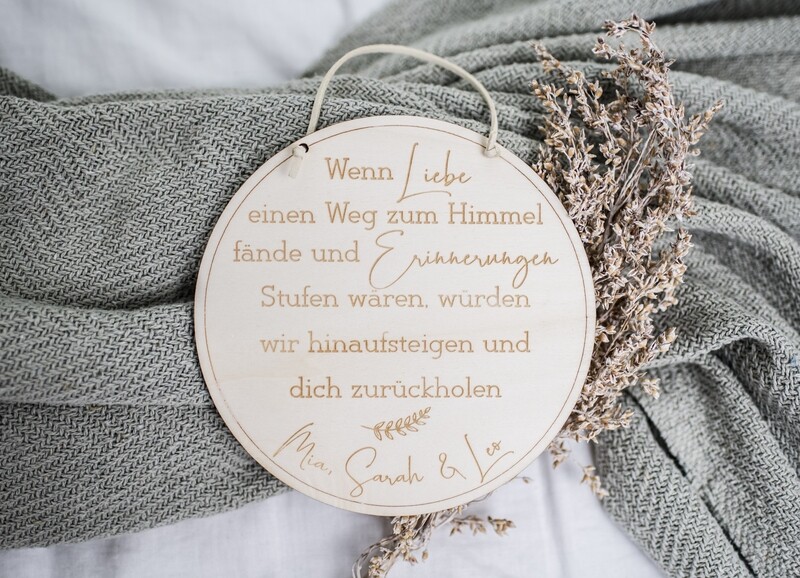 Wenn Liebe
einen Weg zum Himmel
fände und Erinnerungen
Stufen wären, würden
wir hinaufsteigen und
dich zurückholen
Mia, Sarah & Leo